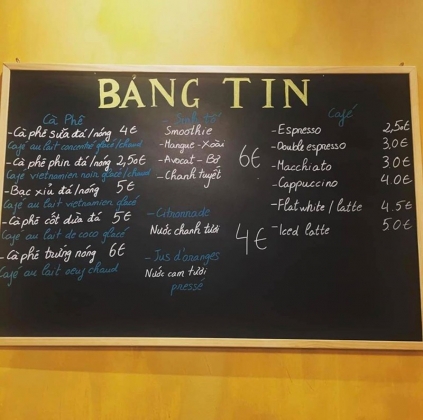 BẢNG TIN
Cà Phê
-Cà phê sữa đá/nóng 4€
Café au lait concentré glacé/chaud
-Cà phê phin đá/nóng 2,50€
Café vietnamien noir glacé/chaud
-Bạc xỉu đá/nóng 5€
Café au lait vietnamien glacé
-Cà phê cốt dừa đá 5€
Café au lait de coco glacé
-Cà phê trứng nóng 6€
Café au lait oeuf chaud
Sinh tố
Smoothie
-Mangue - Xoài
-Avocat - Bơ
-Chanh tuyết
6€
-Citronnade
Nước chanh tươi
4€
-Jus d'oranges
Nước cam tươi
pressé
Café
-Espresso 2,50€
-Double espresso 3.0€
-Macchiato 3.0€
-Cappuccino 4.0€
-Flat white / latte 4.5€
-Iced latte 5.0€